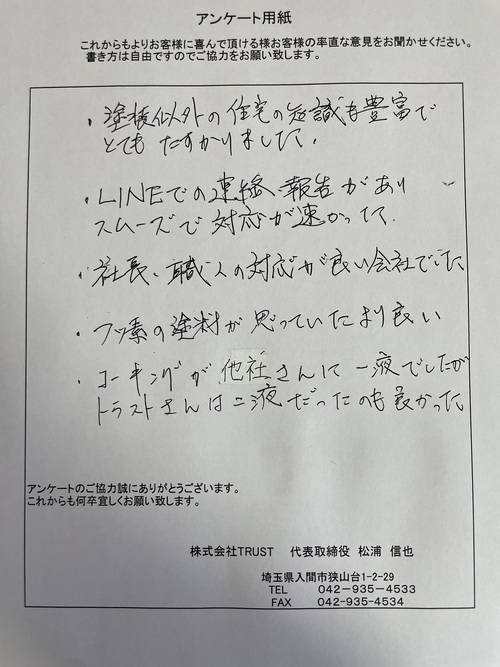 アンケート用紙
これからもよりお客様に喜んで頂ける様お客様の率直な意見をお聞かせください。
書き方は自由ですのでご協力をお願い致します。
・塗装以外の住宅の知識も豊富で
とてもたすかりました。
・LINEでの連絡、報告があり
スムーズで対応が速かった。
・社長、職人の対応が良い会社でした
・フッ素の塗料が思っていたより良い
・コーキングが他社さんは一液でしたが
トラストさんは二液だったのも良かった
アンケートのご協力誠にありがとうございます。
これからも何卒宜しくお願い致します。
株式会社TRUST 代表取締役 松浦 信也
埼玉県入間市狭山台1-2-29
TEL 042-935-4533
FAX 042-935-4534